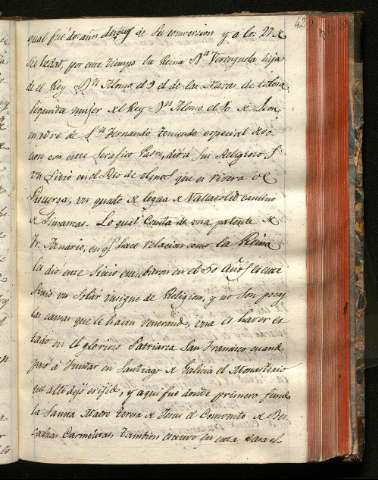 43
qual fue dos años despues de su conversion y a los
de su edad, por este tiempo la Reina Dª Verenguela hija
de el Rey Dn Alonso el 9 el de las Navas de tolosa
segunda muger del Rey Dn Alonso el de Leon
madre de Sn Fernando teniendo especial devo
cion con este Serafico Padre, dió a sus Religiosos
un sitio en el Rio de olmos que es rivera de
Pisuerga, un quarto de legua de Valladolid camino
de Simancas. Lo qual consta de una patente de
Fr. en que hace relacion como la Reina
la dio este sitio
un Solar insigne de Religion, y no son pocas
las causas que le hacen venerable, una es haver es
tado en el el glorioso Patriarca San Francisco quand
pasó a fundar en Santiago de Galicia el Monasterio
que alto dejo escrito, y aqui fue donde primero fundó
la Santa Madre Teresa de Jesus el Convento de Des
calzas Carmelitas, tambien estuvo en esta Casa el